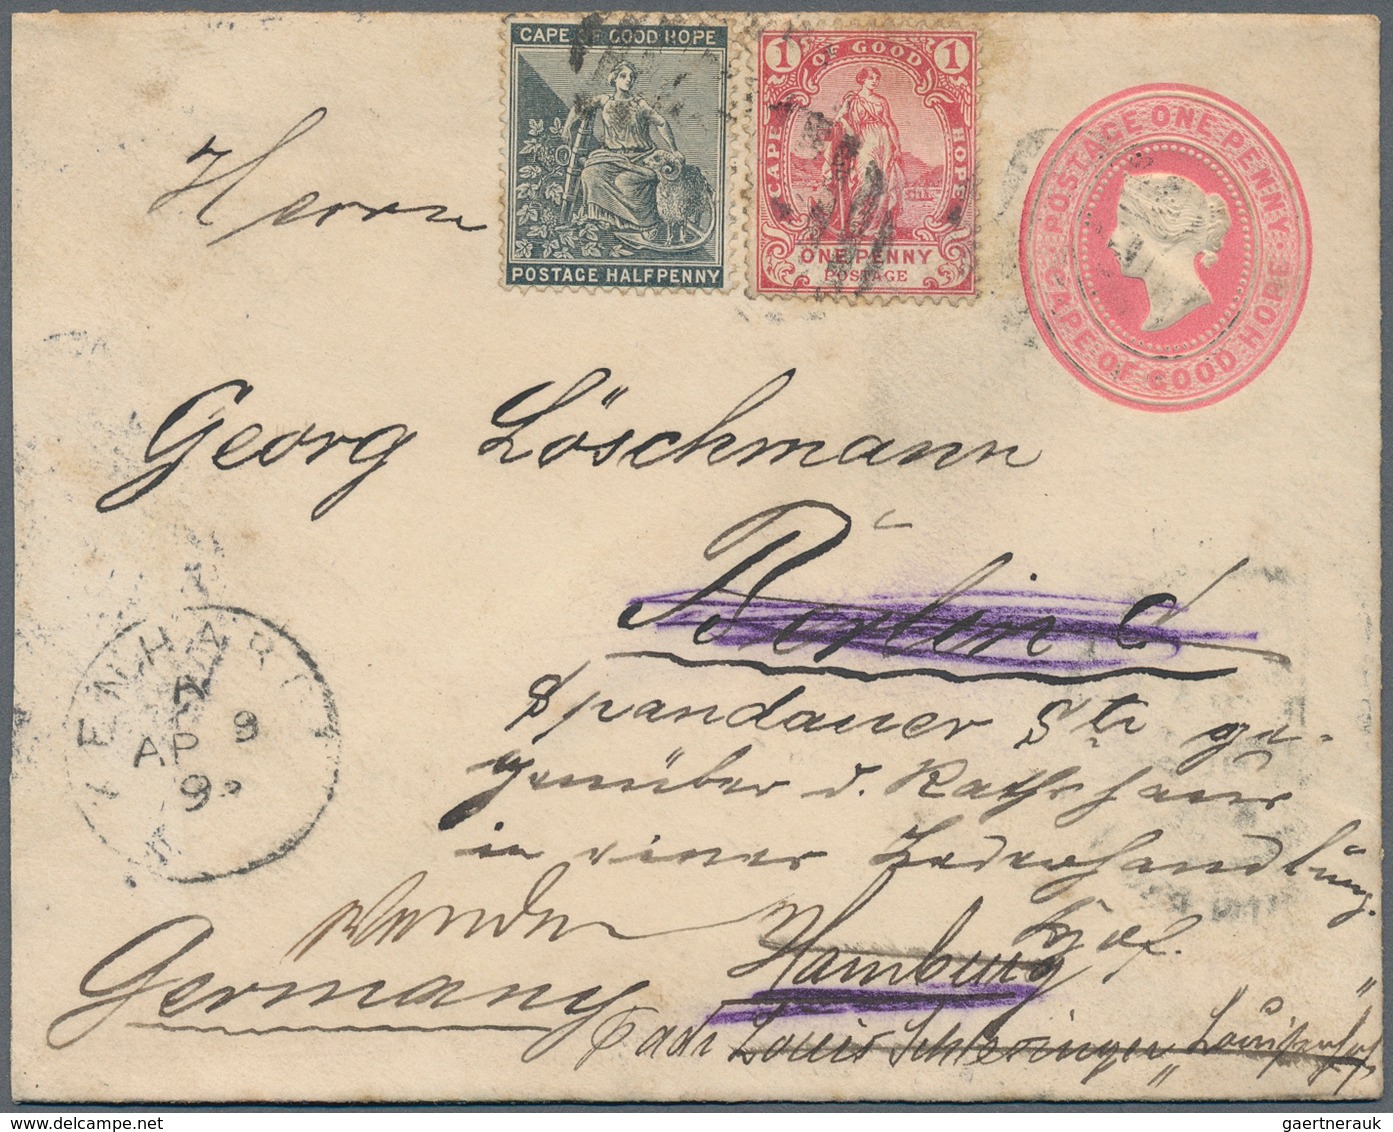 CAPE OF GOOD HOPE
POSTAGE HALFPENNY
1 OF GOOD 1
CAPE HOPE
ONE PENNY
POSTAGE
POSTAGE ONE PENNY
CAPE OF GOOD HOPE
Herrn
Georg Löschmann
Berlin C
Spandauer Str ge-
genüber d. Rathshaus
in einer Lederhandlung.
ENHAR
AP 8
9
Hamburg
Germany
Louis Schlesinger
gaertnerauk